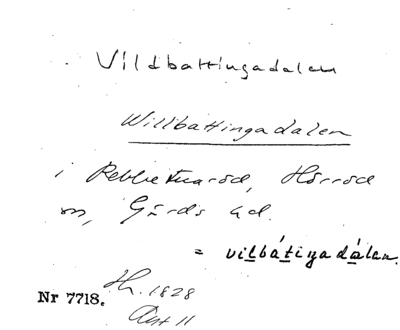 Vildbattingadalen
Willbattingadalen
i Rebbetuaröd, Hörröd
sn, Gärds hd.
= vilbátiŋadálen.
Hh. 1828
Nr 7718.
Akt 11